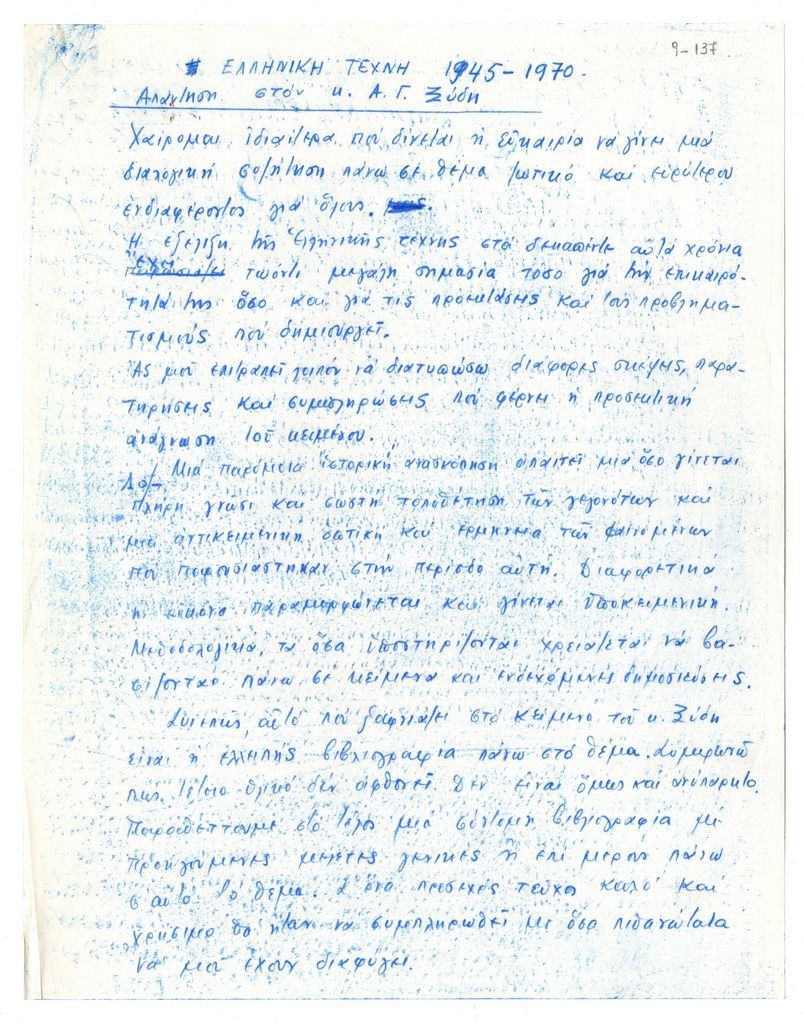 9-137
ΕΛΛΗΝΙΚΗ ΤΕΧΝΗ 1945-1970.
Απάντηση στόν κ. Α. Γ. Ξύδη
Χαίρομαι ἰδιαίτερα πού δίνεται ἡ εὐκαιρία νά γίνει μιά
διαλογική συζήτηση πάνω σέ θέμα ζωτικό και εὐρύτερου
ενδιαφέροντος γιά ὅλους.
Η εξέλιξη τῆς Ἑλληνικῆς τέχνης στά δεκαπέντε αὐτά χρόνια
ἔχει τωόντι μεγάλη σημασία τόσο γιά τήν επικαιρό-
τητά της ὅσο και γιά τις προεκτάσεις και τούς προβλημα-
τισμούς πού δημιουργεῖ.
Ἄς μοῦ επιτραπεῖ λοιπόν νά διατυπώσω διάφορες σκέψεις, παρα-
τηρήσεις και συμπληρώσεις πού φέρνει ἡ προσεκτική
ανάγνωση τοῦ κειμένου.
Μιά παρόμοια ἱστορική ανασκόπηση απαιτεῖ μιά ὅσο γίνεται
πλήρη γνώση και σωστή τοποθέτηση τῶν γεγονότων και
μιά αντικειμενική και ερμηνεία τῶν φαινομένων
πού παρουσιάστηκαν στήν περίοδο αυτή. Διαφορετικά
ἡ εικόνα παραμορφώνεται και γίνεται ὑποκειμενική.
Μεθοδολογικά, τά ὅσα ὑποστηρίζονται χρειάζεται νά βα-
σίζονται πάνω σέ κείμενα και ενδεχόμενες δημοσιεύσεις.
Συνεπῶς, αὐτό πού ξαφνιάζει στό κείμενο τοῦ κ. Ξύδη
εἶναι ἡ ἐλλιπής βιβλιογραφία πάνω στό θέμα. Συμφωνῶ
πώς τέτοιο ὑλικό δέν αφθονεῖ. Δέν εἶναι ὅμως και ανύπαρκτο.
Παραθέττουμε στό τέλος μιά σύντομη βιβλιογραφία μέ
προηγούμενες μελέτες γενικές ἤ επί μέρους πάνω
σ' αὐτό τό θέμα. Σ' ἕνα προσεχές τεῦχος καλό και
χρήσιμο θά ἦταν νά συμπληρωθεῖ μέ ὅσα πιθανώτατα
νά μοῦ ἔχουν διαφύγει.